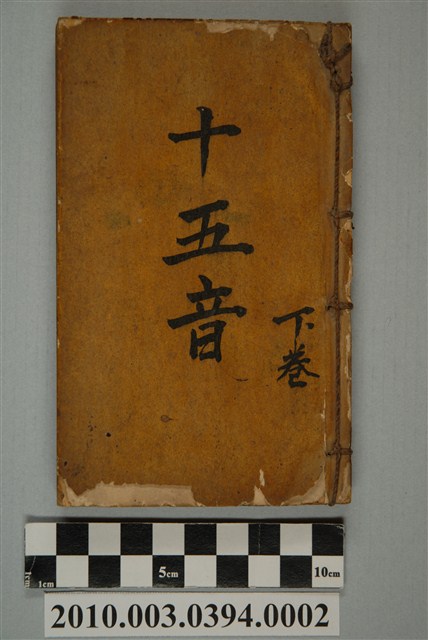 十五音
下卷
1cm
1cm
5cm
10cm
2010.003.0394.0002